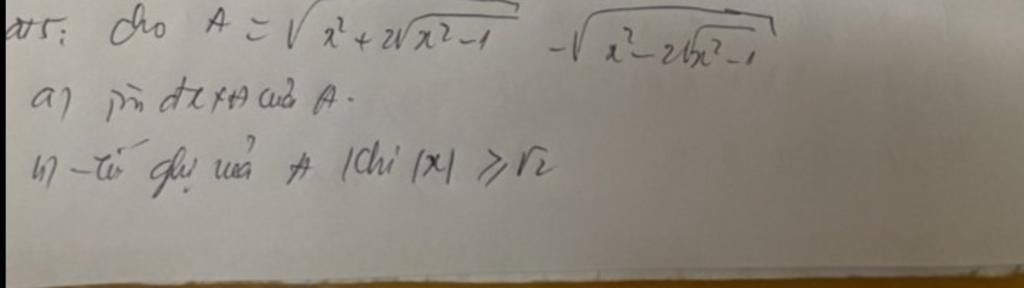 cho A = √(x² + 2√(x² - 1)) - √(x² - 2√(x² - 1))
a) Tìm đkxđ của A.
b) giá của A khi |x| ≥ √2